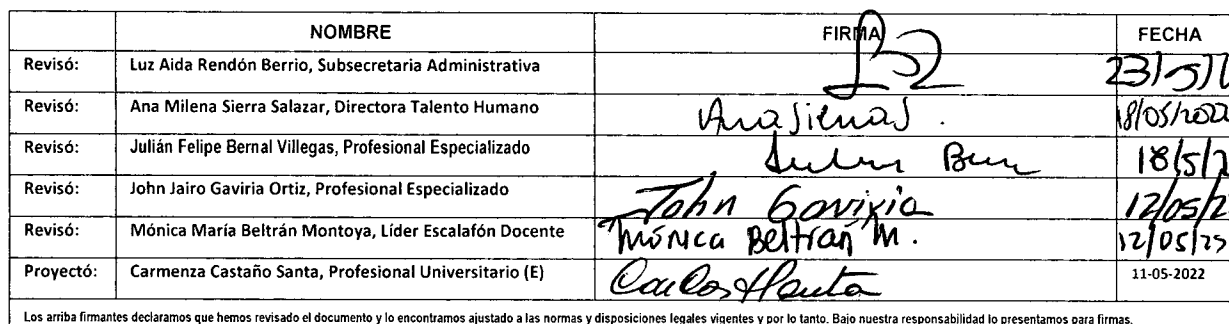 NOMBRE FIRMA FECHA
Revisó: Luz Aida Rendón Berrio, Subsecretaria Administrativa 23/5/2
Revisó: Ana Milena Sierra Salazar, Directora Talento Humano AnaSierraS. 18/05/2022
Revisó: Julián Felipe Bernal Villegas, Profesional Especializado 18/5/2
Revisó: John Jairo Gaviria Ortiz, Profesional Especializado John Gaviria 12/05/2
Revisó: Mónica María Beltrán Montoya, Líder Escalafón Docente Mónica Beltrán M. 12/05/
Proyectó: Carmenza Castaño Santa, Profesional Universitario (E) 11-05-2022
Los arriba firmantes declaramos que hemos revisado el documento y lo encontramos ajustado a las normas y disposiciones legales vigentes y por lo tanto. Bajo nuestra responsabilidad lo presentamos para firmas.